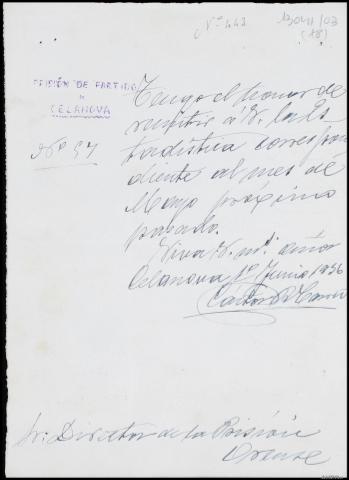 Nº 442
13041/03
(18)
PRISIÓN DE PARTIDO
DE
CELANOVA
Nº 57
Tengo el honor de
remitir á V. la Es
tadística correspon
diente al mes de
Mayo próximo
pasado.
Viva V. m. años
Celanova 1º Junio 1936
Sr. Director de la Prisión
Orense